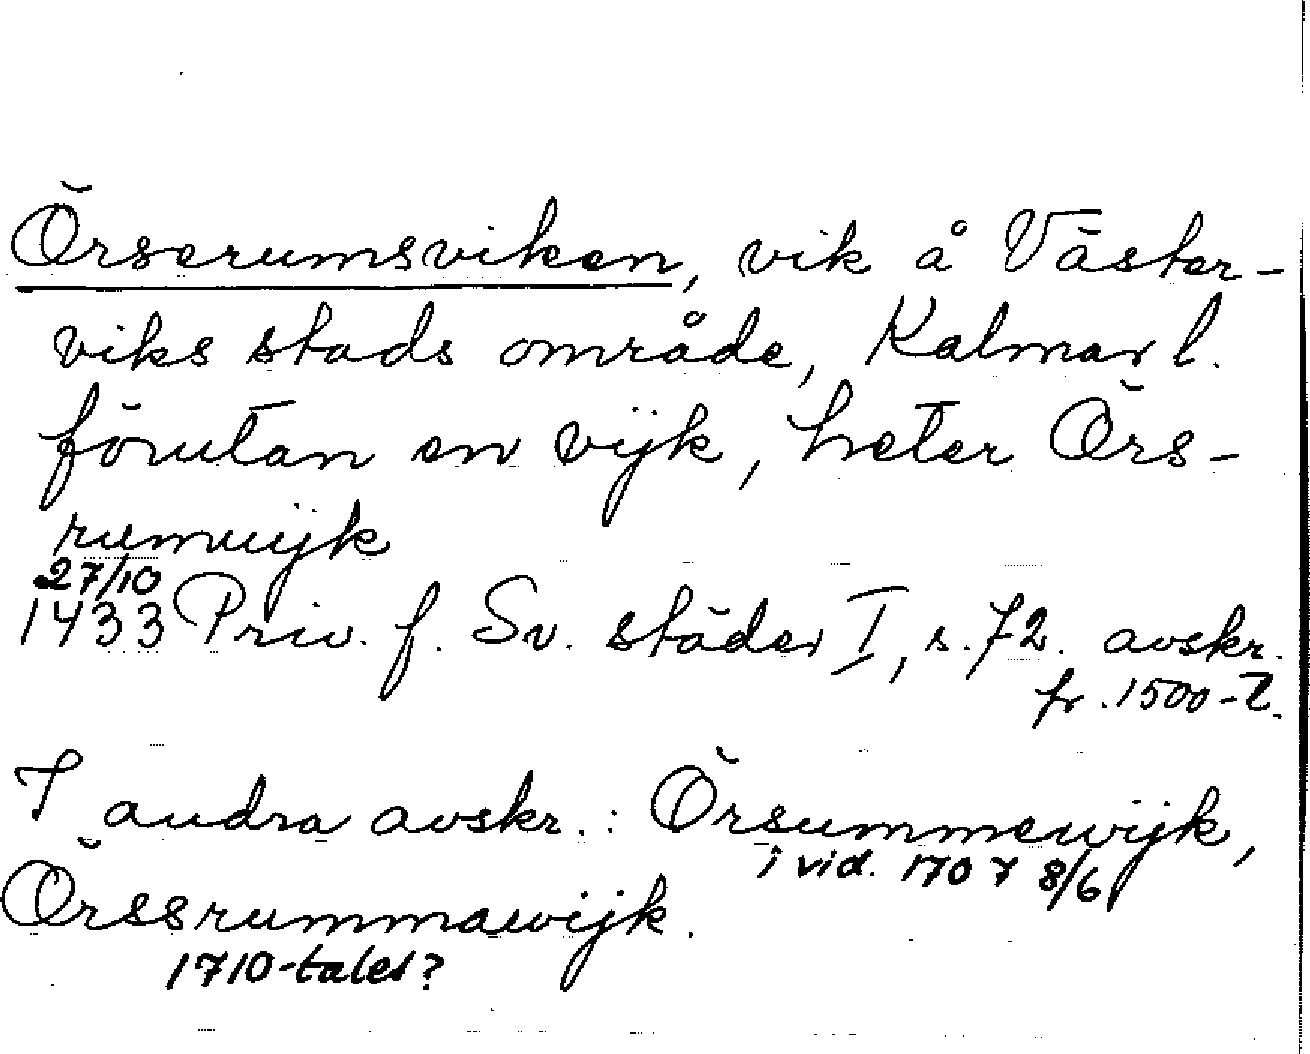 Örserumsviken, vik å Väster-
viks stads område, Kalmar l.
förutan en vijk, heter Örs-
rumwijk
27/10
1433 Priv. f. Sv. städer I, s. 72. avskr.
fr. 1500-t.
I andra avskr.: Örsummewijk,
i vid. 1707 8/6
Örssrummawijk.
1710-talet?